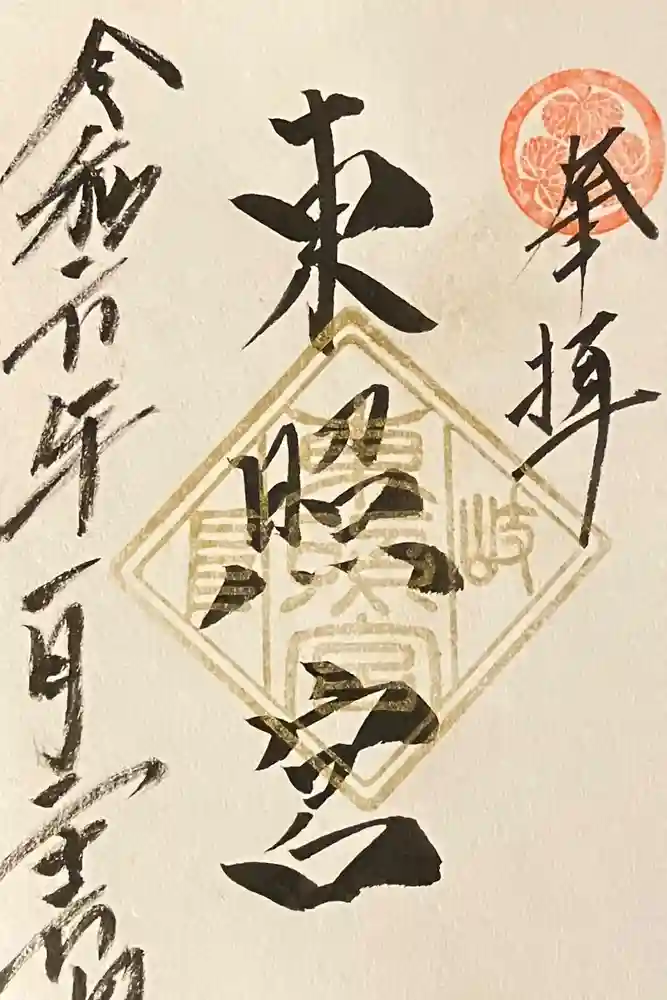 奉拝
東照宮
令和六年一月二十日
岐
東照宮
阜